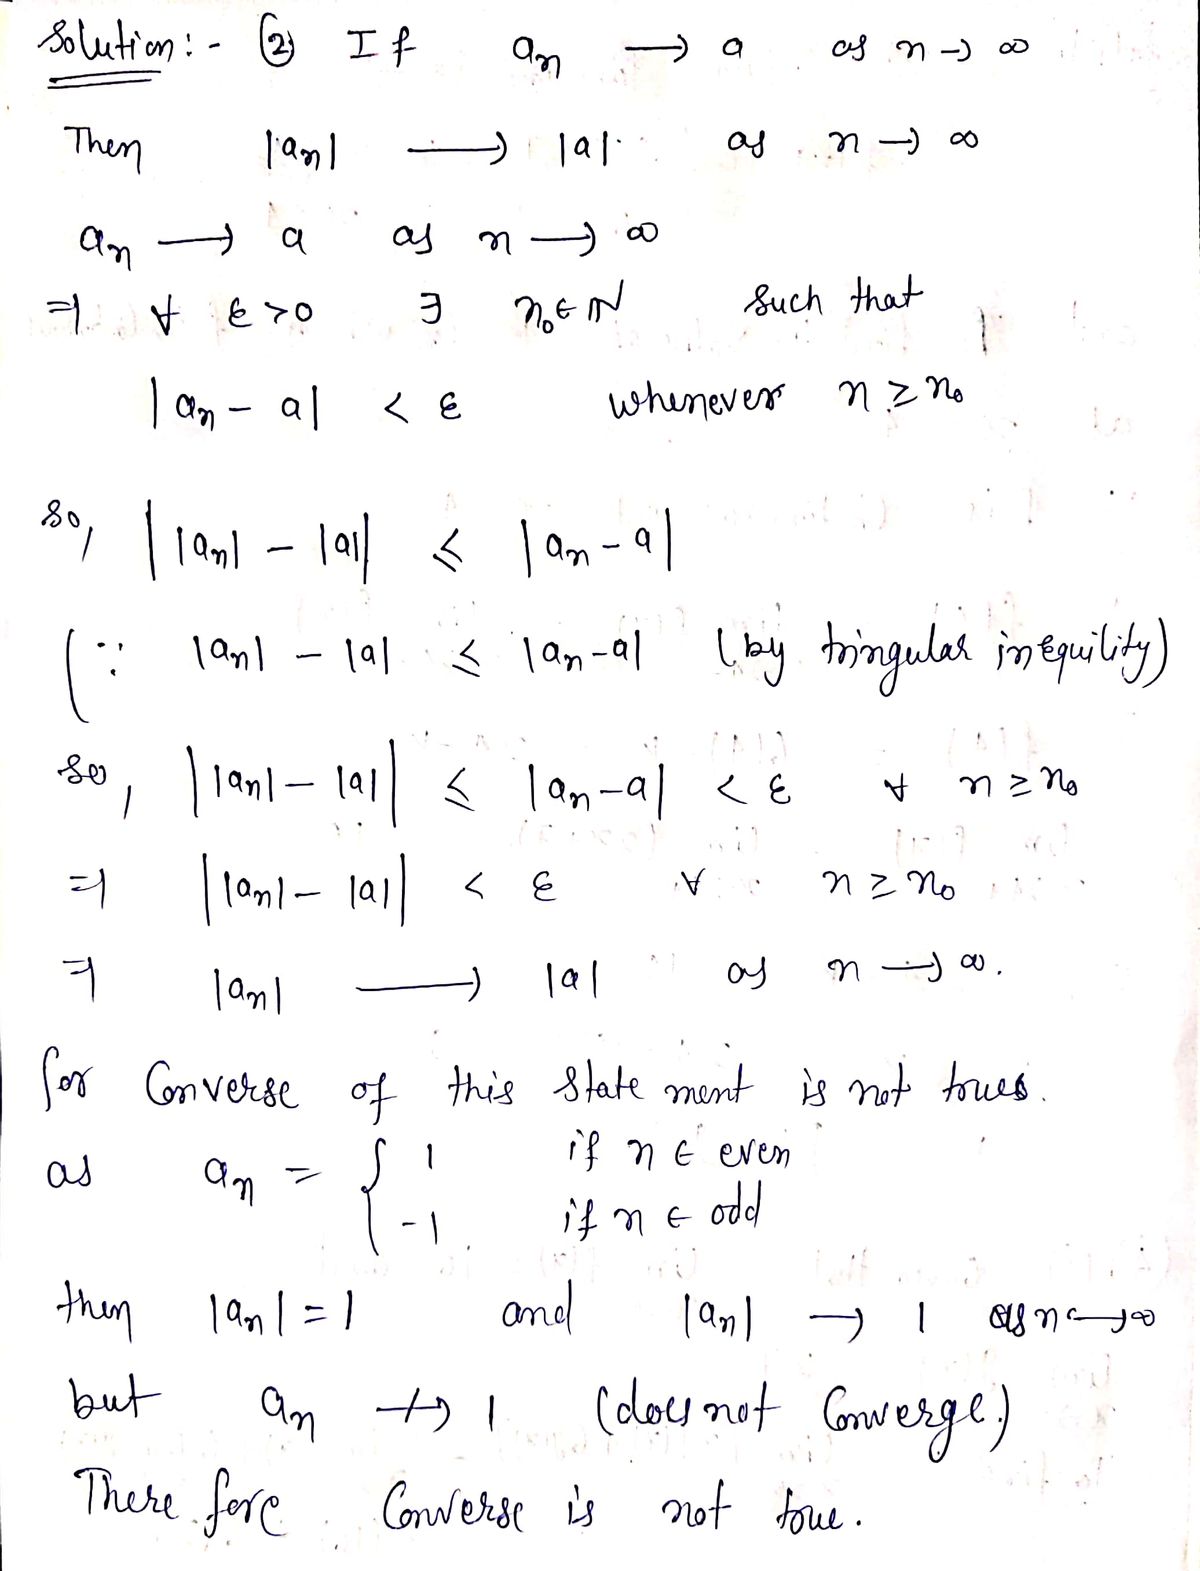 Solution:- (2) If an → a as n → ∞
Then |an| → |a| as n → ∞
an → a as n → ∞
⇒ ∀ ε > 0 ∃ n₀ ∈ ℕ such that
|an - a| < ε whenever n ≥ n₀
so, ||an| - |a|| ≤ |an - a|
(∵ |an| - |a| ≤ |an - a| (by tringular inequility)
so, ||an| - |a|| ≤ |an - a| < ε ∀ n ≥ n₀
⇒ ||an| - |a|| < ε ∀ n ≥ n₀
⇒ |an| → |a| as n → ∞.
for Converse of this state ment is not trues.
as an = { 1 if n ∈ even
-1 if n ∈ odd
then |an| = 1 and |an| → 1 as n → ∞
but an ↛ 1 (does not Converge.)
There fore Converse is not true.